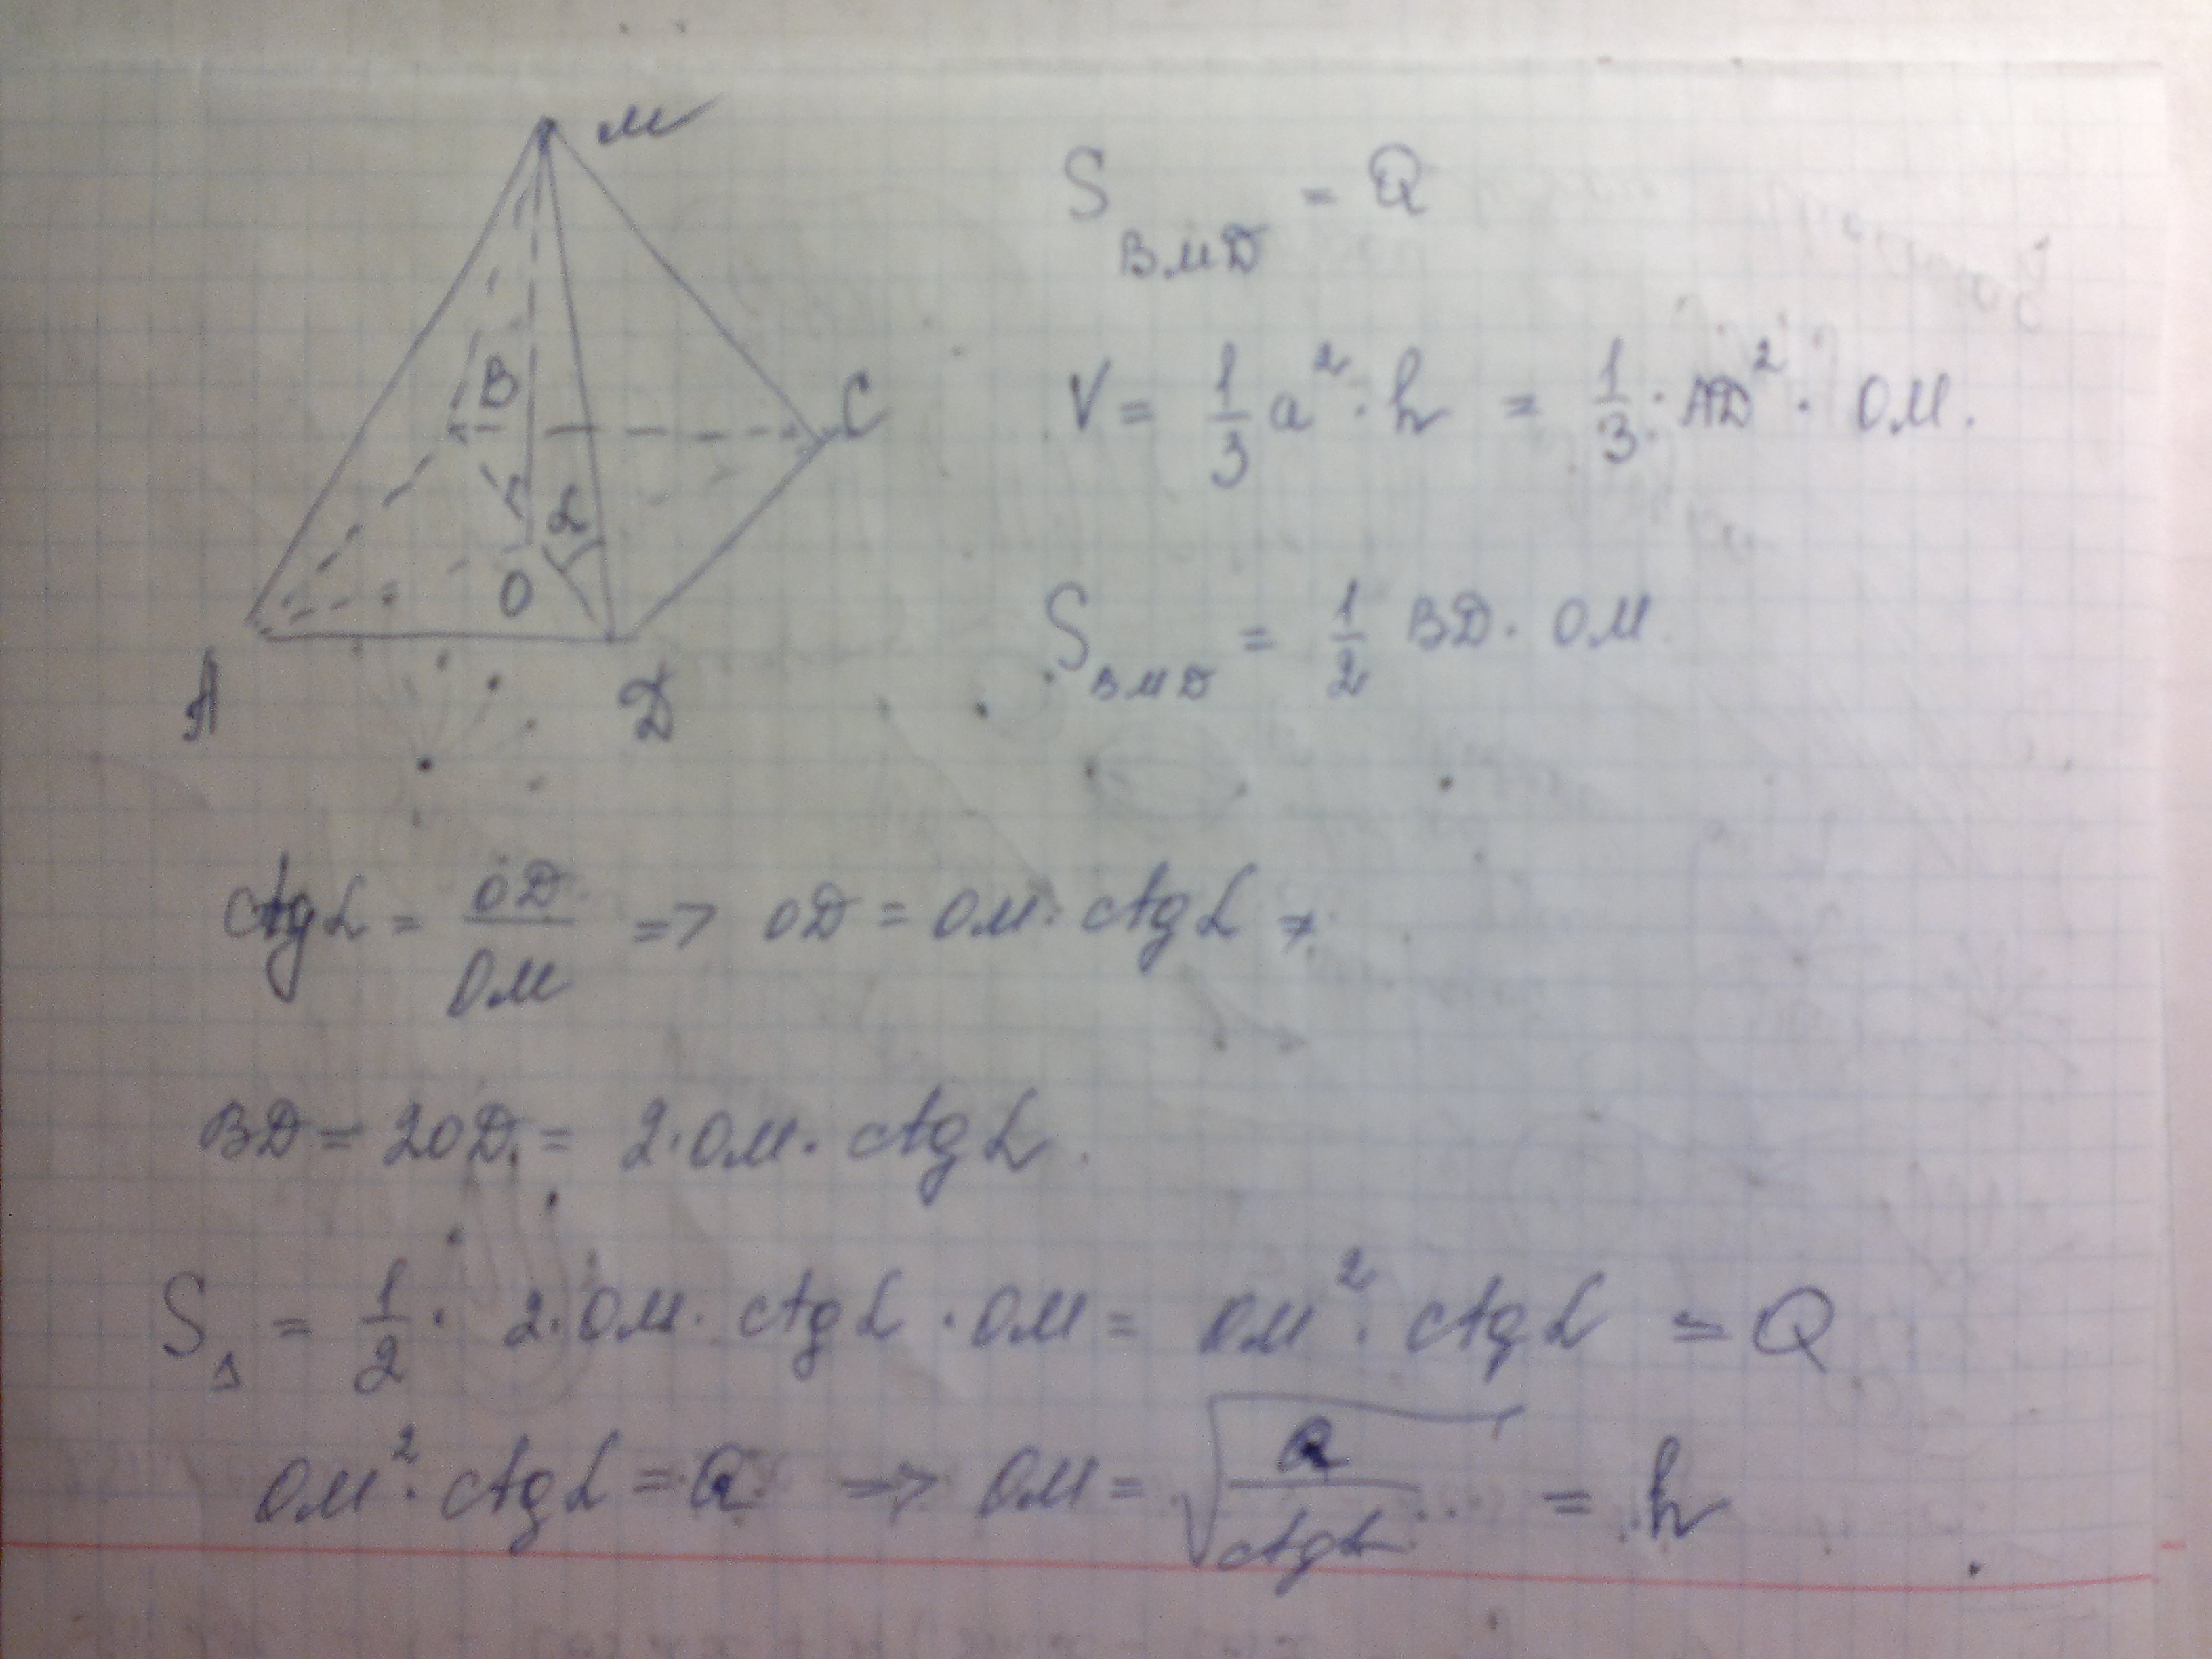 M
B
C
α
O
A
D
S_BMD = Q
V = 1/3 a² · h = 1/3 · AD² · OM.
S_BMD = 1/2 BD · OM
ctgα = OD/OM => OD = OM · ctgα =>
BD = 2OD = 2 · OM · ctgα.
S_Δ = 1/2 · 2 · OM · ctgα · OM = OM² · ctgα = Q
OM² · ctgα = Q => OM = √(Q/ctgα) = h